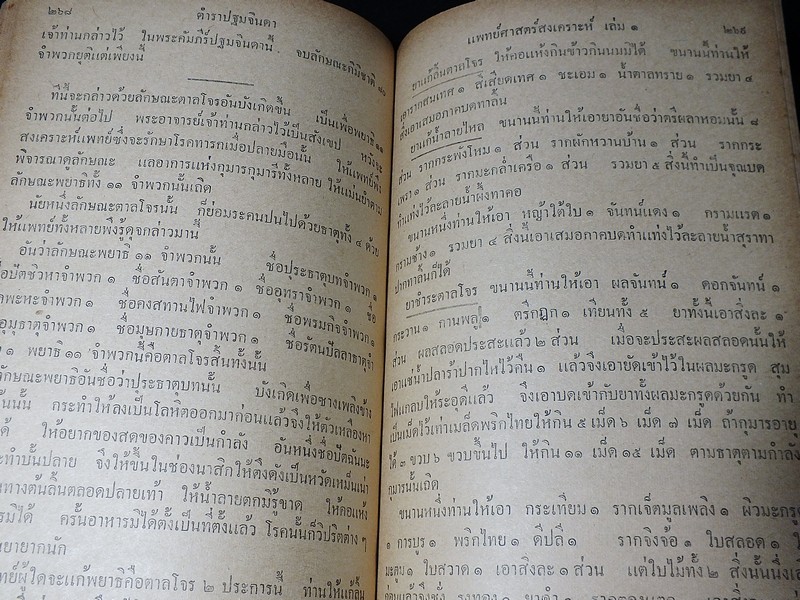 ๒๖๘ ตำราปฐมจินดา
เจ้าท่านกล่าวไว้ ในพระคัมภีร์ปฐมจินดานี้ จบลักษณะกิมิชาติ
จำพวกยุติแต่เพียงนี้
ที่นี้จะกล่าวด้วยลักษณะตาลโจรอันบังเกิดขึ้น เป็นเพื่อพยาธิ ๑๑
จำพวกนั้นต่อไป พระอาจารย์เจ้าท่านกล่าวไว้เป็นสังเขป หวังจะ
สงเคราะห์แพทย์ซึ่งจะรักษาโรคทารกเมื่อปลายมือนั้น ให้แพทย์พึง
พิจารณาดูลักษณะ แลอาการแห่งกุมารกุมารีทั้งหลาย ให้แม่นยำตาม
ลักษณะพยาธิทั้ง ๑๑ จำพวกนั้นเถิด
นัยหนึ่งลักษณะตาลโจรนั้น ก็ย่อมระคนปนไปด้วยธาตุทั้ง ๔ ด้วย
ให้แพทย์ทั้งหลายพึงรู้ดุจกล่าวมานี้
อันว่าลักษณะพยาธิ ๑๑ จำพวกนั้น ชื่อปุระธาตุบทจำพวก ๑
ชื่อปัตชิวหาจำพวก ๑ ชื่อสันดาจำพวก ๑ ชื่ออุทราจำพวก ๑ ชื่อ
ดพะหะจำพวก ๑ ชื่อคงสทานไฟจำพวก ๑ ชื่อพรมกิจจำพวก ๑
อุมุธาตุจำพวก ๑ ชื่อมุษกายธาตุจำพวก ๑ ชื่อรัตนปิลลาธาตุจำ
๑ พยาธิ ๑๑ จำพวกนี้คือตาลโจรสิ้นทั้งนั้น
ลักษณะพยาธิอันชื่อว่าประธาตุบทนั้น บังเกิดเพื่อซางเพลิงข้าง
นั้น กระทำให้ลงเป็นโลหิตออกมาก่อนแล้วจึงให้ตัวเหลืองหา
ด้ ให้อยากของสดของคาวเป็นกำลัง อันหนึ่งชื่อปัตฉันนะ
ะทำบั้นปลาย จึงให้ขึ้นในช่องนาสิกให้ตึงดังเป็นหวัดเหม็นเน่า
นทางต้นลิ้นตลอดปลายเท้า ให้น้ำลายตกมิรู้ขาด ให้คอแห้ง
รมิได้ ครั้นอาหารมิได้ตั้งเป็นที่ตั้งแล้ว โรคนั้นก็วิปริตต่าง ๆ
พยายากนัก
ทย์ผู้ใดจะแก้พยาธิคือตาลโจร ๒ ประการนี้ ท่านให้แก้ลิ้น
แพทย์ศาสตร์สงเคราะห์ เล่ม ๑ ๒๖๙
ยาแก้ลิ้นตาลโจร ให้คอแห้งกินข้าวกินนมมิได้ ขนานนี้ท่านให้
เอารากสนเทศ ๑ สีเสียดเทศ ๑ ชะเอม ๑ น้ำตาลทราย ๑ รวมยา ๔
สิ่งเอาเสมอภาคบดทาลิ้น
ยาแก้น้ำลายไหล ขนานนี้ท่านให้เอายาอันชื่อว่าตรีผลาหอมนั้น ๘
ส่วน รากกระพังโหม ๑ ส่วน รากผักหวานบ้าน ๑ ส่วน รากกระ
เพรา ๑ ส่วน รากมะกล่ำเครือ ๑ ส่วน รวมยา ๕ สิ่งนี้ทำเป็นจุณบด
ทำแท่งไว้ละลายน้ำผึ้งทาคอ
ขนานหนึ่งท่านให้เอา หญ้าใต้ใบ ๑ จันทน์แดง ๑ กรามแรด ๑
กรามช้าง ๑ รวมยา ๔ สิ่งนี้เอาเสมอภาคบดทำแท่งไว้ละลายน้ำสุราทา
ปากทาลิ้นก็ได้
ยาชำระตาลโจร ขนานนี้ท่านให้เอา ผลจันทน์ ๑ ดอกจันทน์ ๑
กระวาน ๑ กานพลู ๑ ตรีกฎุก ๑ เทียนทั้ง ๕ ยาทั้งนี้เอาสิ่งละ ๑
ส่วน ผลสลอดประสะแล้ว ๒ ส่วน เมื่อจะประสะผลสลอดนั้นให้
เอาแช่น้ำปลาร้าปากไหไว้คืน ๑ แล้วจึงเอายัดเข้าไว้ในผลมะกรูด สุม
ไฟแกลบให้ระอุดีแล้ว จึงเอาบดเข้ากับยาทั้งผลมะกรูดด้วยกัน ทำ
เป็นเม็ดไว้เท่าเมล็ดพริกไทยให้กิน ๕ เม็ด ๖ เม็ด ๗ เม็ด ถ้ากุมารอายุ
ได้ ๓ ขวบ ๖ ขวบขึ้นไป ให้กิน ๑๑ เม็ด ๑๕ เม็ด ตามธาตุตามกำลัง
กุมารนั้นเถิด
ขนานหนึ่งท่านให้เอา กระเทียม ๑ รากเจ็ตมูลเพลิง ๑ ผิวมะกรูด
๑ การบูร ๑ พริกไทย ๑ ดีปลี ๑ รากจิงจ้อ ๑ ใบสลอด ๑ ใ
มะตูม ๑ ใบสวาด ๑ เอาสิ่งละ ๑ ส่วน แต่ใบไม้ทั้ง ๒ สิ่งนั้นนึ่งเส